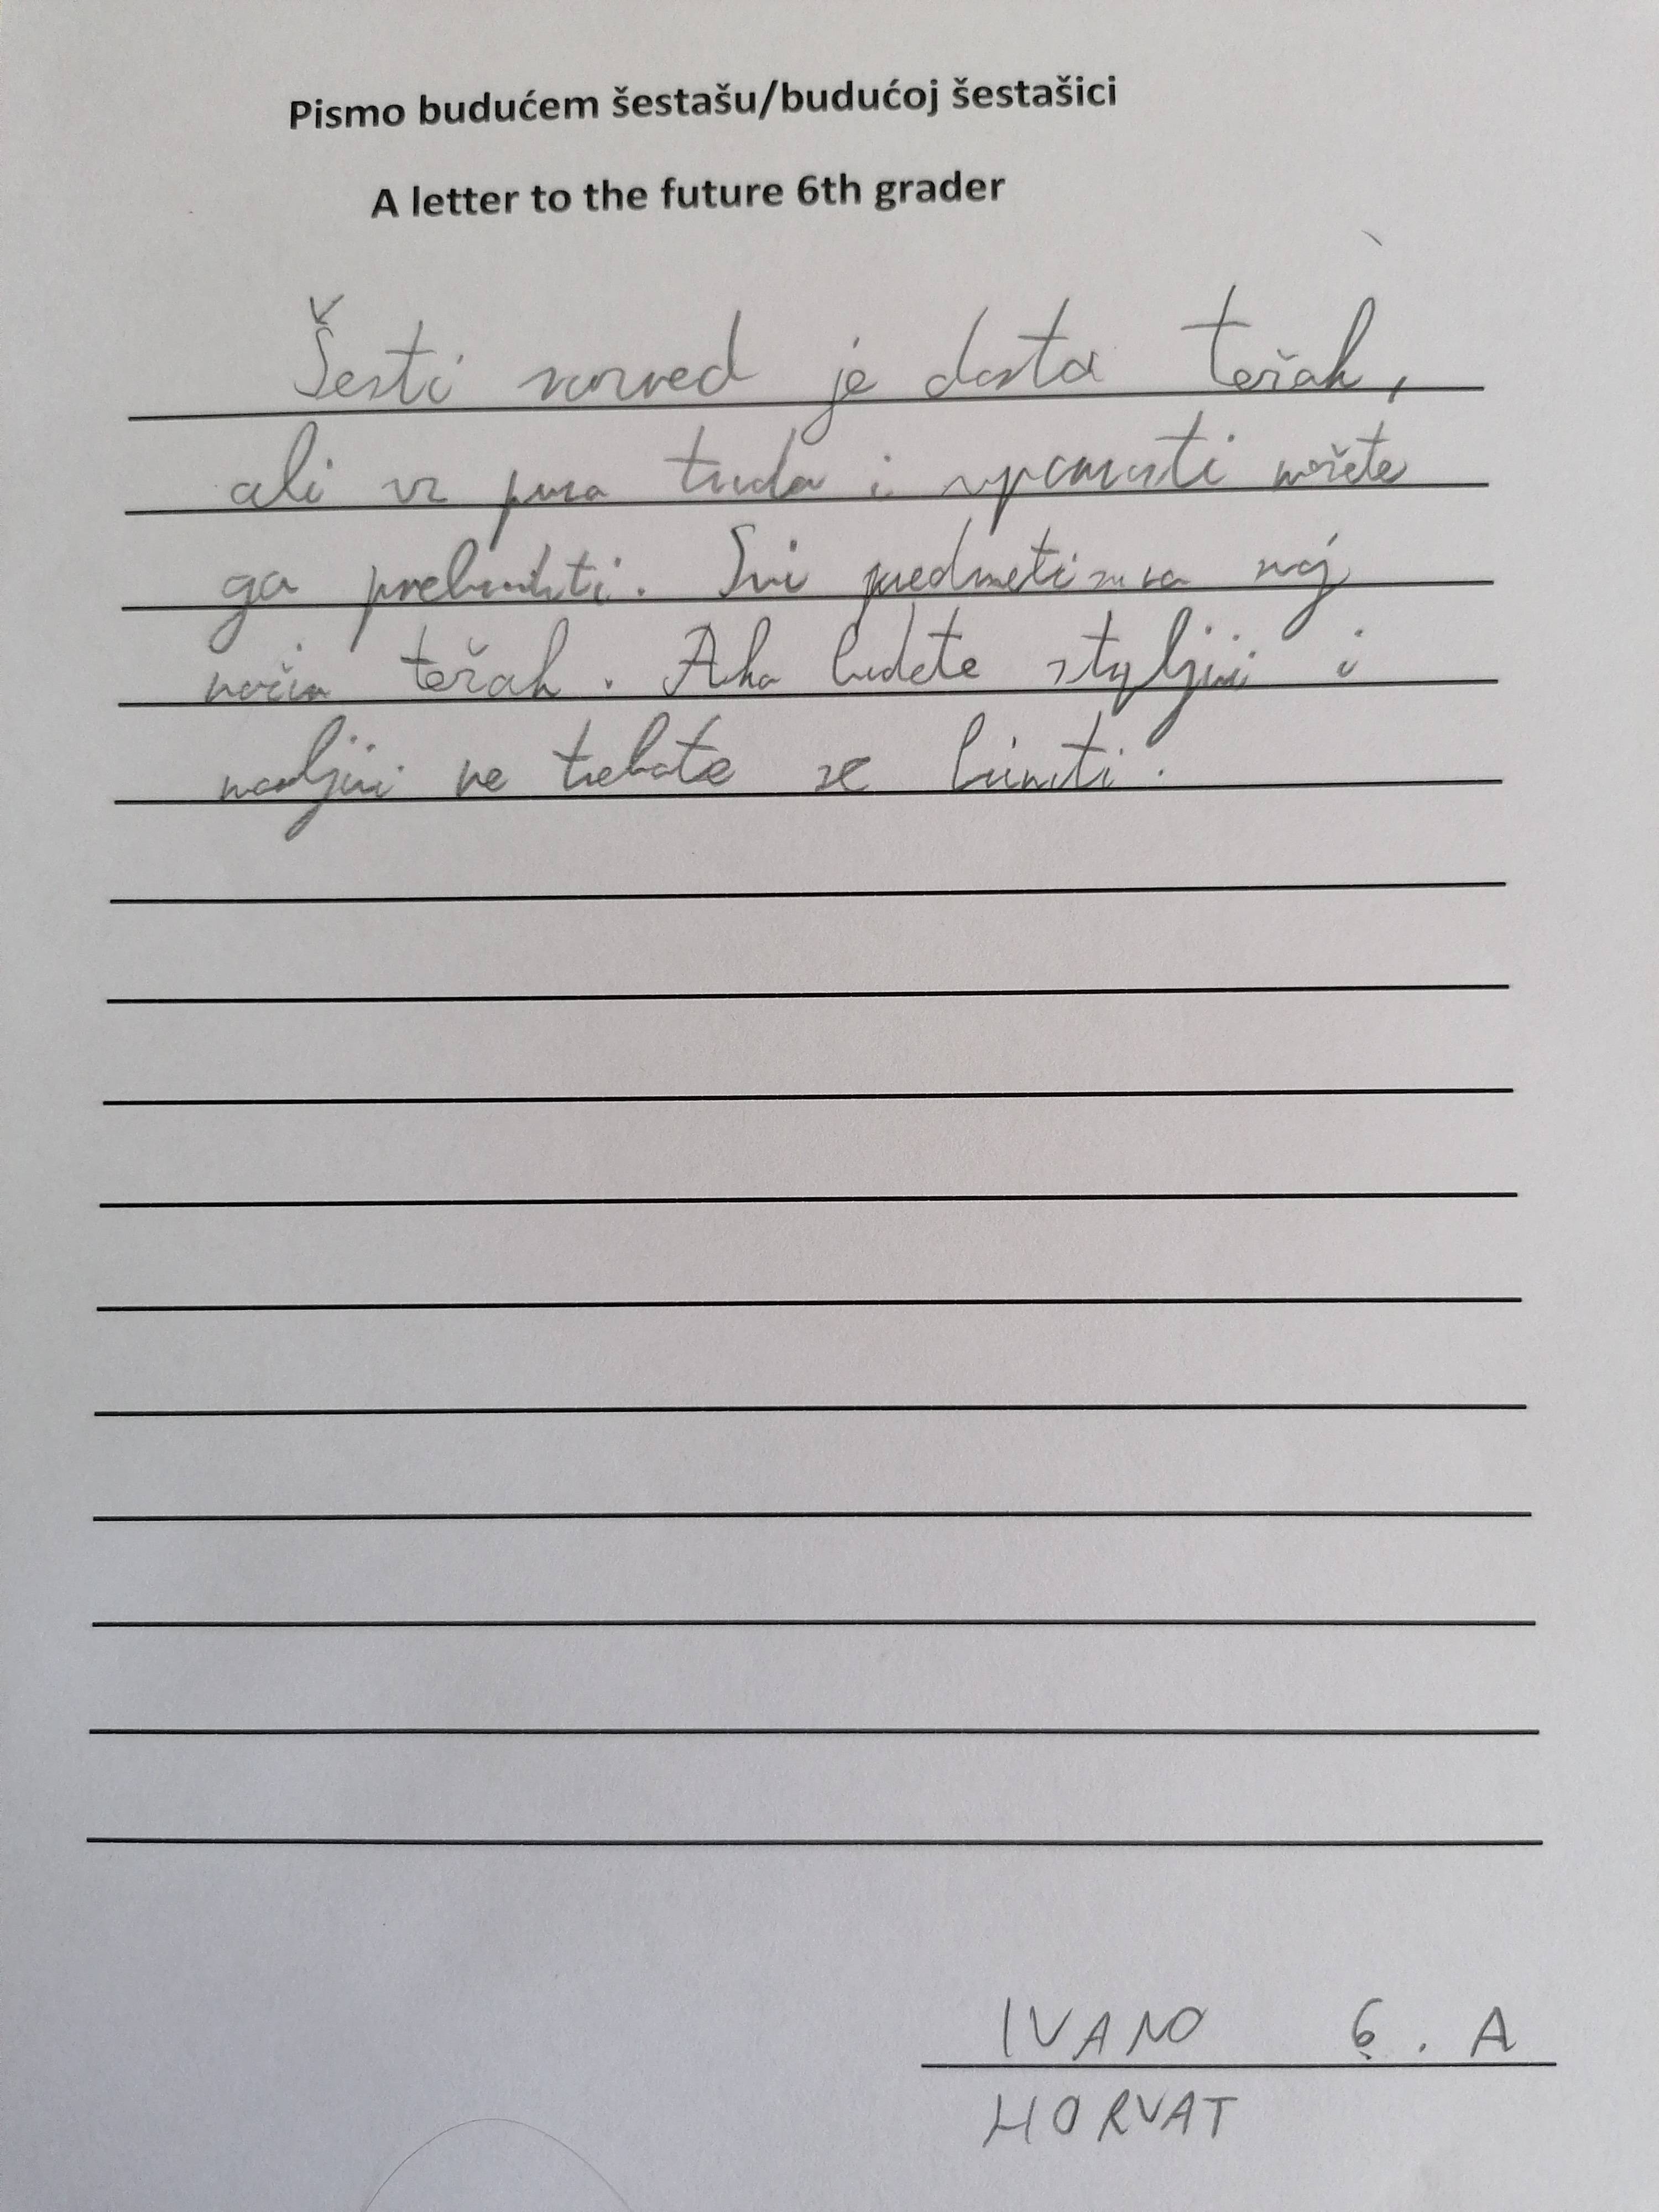 Pismo budućem šestašu/budućoj šestašici
A letter to the future 6th grader
Šesti razred je dosta težak,
ali uz puno truda i upornosti možete
ga prebroditi. Svi predmeti su na svoj
način težak. Ako budete strpljivi i
marljivi ne trebate se brinuti.
IVANO 6. A
HORVAT